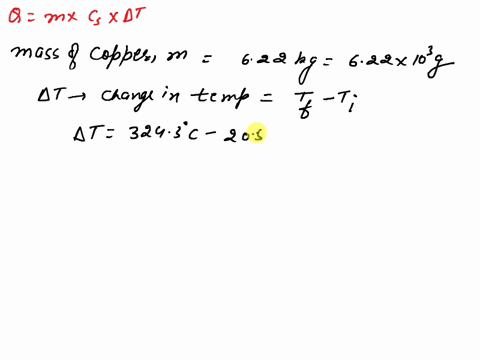 Q = m × Cs × ΔT
mass of copper, m = 6.22 kg = 6.22 × 10³ g
ΔT → change in temp = Tf - Ti
ΔT = 324.3°C - 20.5